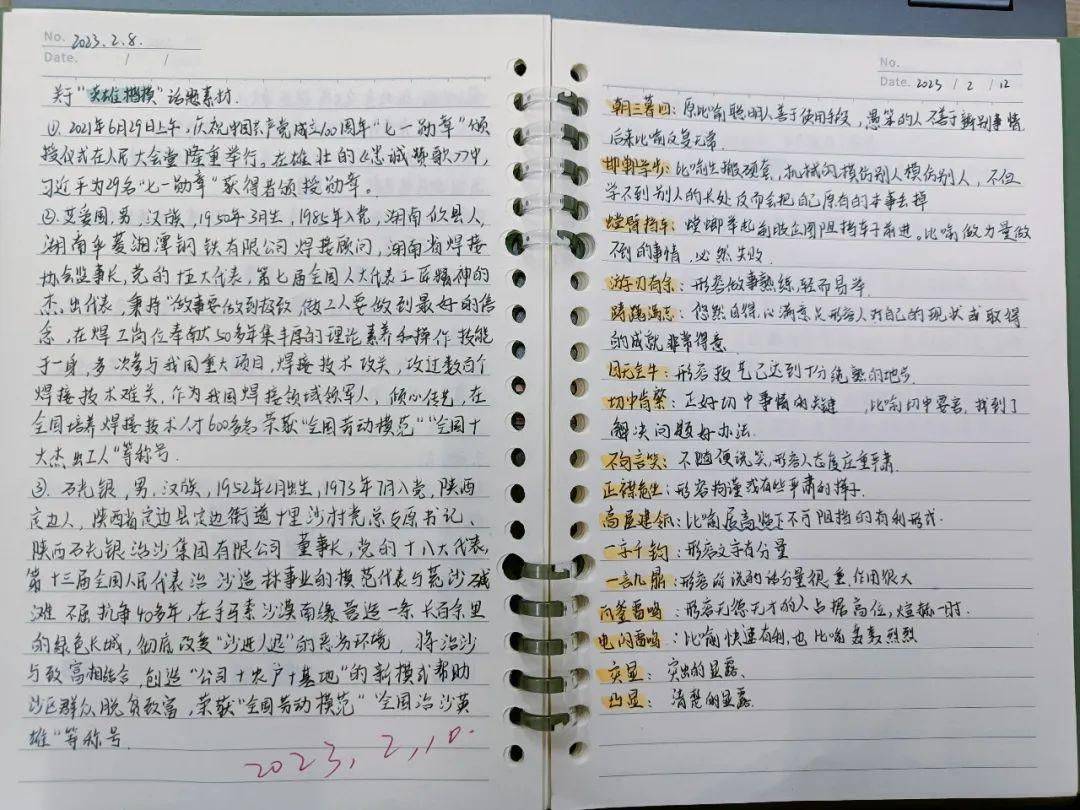 No. 2023.2.8.
Date. / /
关于"英雄楷模"话题素材.
①. 2021年6月29日上午,庆祝中国共产党成立100周年"七一勋章"颁
授仪式在人民大会堂隆重举行。在雄壮的《忠诚颂歌》中,
习近平为29名"七一勋章"获得者颁授勋章。
②. 艾爱国,男,汉族,1950年3月生,1985年入党,湖南攸县人,
湖南华菱湘潭钢铁有限公司焊接顾问,湖南省焊接
协会监事长,党的十五大代表,第七届全国人大代表工匠精神的
杰出代表,秉持"做事要做到极致 做工人要做到最好的信
念,在焊工岗位奉献50多年集丰厚的理论素养和操作技能
于一身,多次参与我国重大项目,焊接技术攻关,攻过数百个
焊接技术难关,作为我国焊接领域领军人,倾心传艺,在
全国培养焊接技术人才600多名 荣获"全国劳动模范""全国十
大杰出工人"等称号.
③. 石光银,男,汉族,1952年2月出生,1973年7月入党,陕西
定边人,陕西省定边县定边街道十里沙村党总支原书记、
陕西石光银治沙集团有限公司董事长,党的十八大代表,
第十三届全国人民代表治沙造林事业的模范代表与荒沙碱
滩不屈抗争40多年,在毛乌素沙漠南缘营造一条长百余里
的绿色长城,彻底改变"沙进人退"的恶劣环境,将治沙
与致富相结合,创造"公司+农户+基地"的新模式帮助
沙区群众脱贫致富,荣获"全国劳动模范""全国治沙英
雄"等称号.
2023,2,10.
No.
Date. 2023 / 2 / 12
朝三暮四:原比喻聪明人善于使用手段,愚笨的人不善于辨别事情,
后来比喻反复无常.
邯郸学步:比喻生搬硬套,机械的模仿别人模仿别人,不但
学不到别人的长处反而会把自己原有的本事丢掉
螳臂挡车:螳螂举起前肢企图阻挡车子前进。比喻做力量做
不倒的事情,必然失败.
游刃有余:形容做事熟练,轻而易举.
踌躇满志:悠然自得,心满意足形容人对自己的现状或取得
的成就非常得意.
目无全牛:形容技艺已达到十分纯熟的地步.
切中肯綮:正好切中事情的关键,比喻切中要害,找到了
解决问题好办法.
不苟言笑:不随便说笑,形容人态度庄重严肃.
正襟危坐:形容拘谨或有些严肃的样子.
高屋建瓴:比喻居高临下不可阻挡的有利形式.
一字千钧:形容文字有分量
一言九鼎:形容所说的话分量很重,作用很大
瓦釜雷鸣:形容无德无才的人占据高位,煊赫一时.
电闪雷鸣:比喻快速有利,也比喻轰轰烈烈
突显:突出的显露、
凸显:清楚的显露.